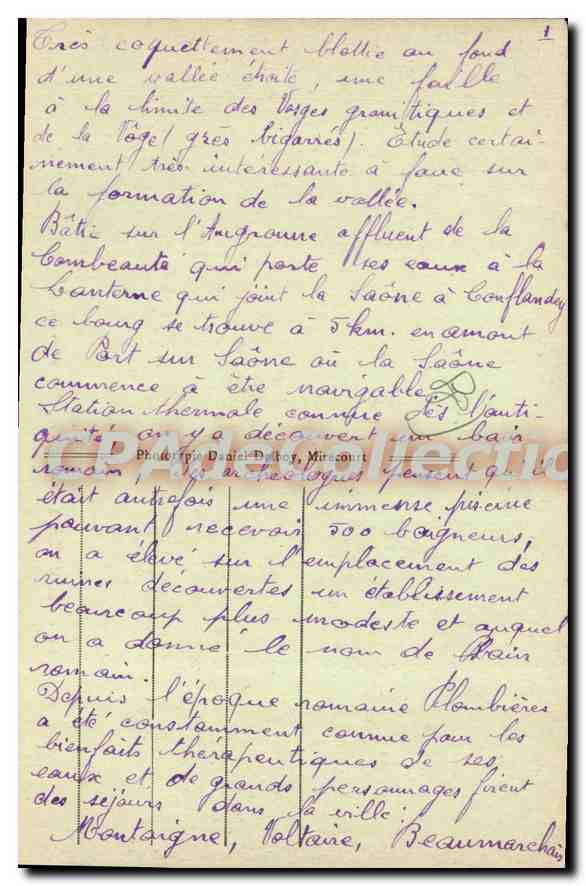 1
Très coquettement blottie au fond
d'une vallée étroite, une faille
à la limite des Vosges granitiques et
de la Vôge (grès bigarrés). Etude certai-
nement très intéressante à faire sur
la formation de la vallée.
Bâtie sur l'Augronne affluent de la
Combeauté qui porte ses eaux à la
Lanterne qui joint la Saône à Conflandey
ce bourg se trouve à 5 km. en amont
de Port sur Saône où la Saône
commence à être navigable.
Station thermale connue dès l'anti-
quité on y a découvert un bain
CPAdecollection
Phototypie Daniel Delboy, Mirecourt
romain, les archéologues pensent qu'il
était autrefois une immense piscine
pouvant recevoir 500 baigneurs,
on a élevé sur l'emplacement des
ruines découvertes un établissement
beaucoup plus modeste et auquel
on a donné le nom de Bain
romain.
Depuis l'époque romaine Plombières
a été constamment connue pour les
bienfaits thérapeutiques de ses
eaux et de grands personnages firent
des séjours dans la ville:
Montaigne, Voltaire, Beaumarchais